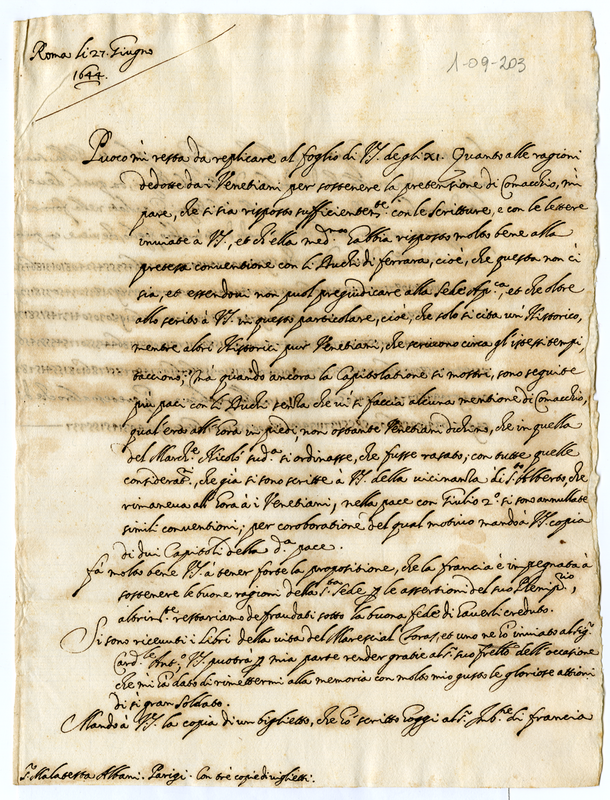 Roma li 27. Giugno
1644.
1-09-203
Puoco mi resta da replicare al foglio di VS. degli XI. Quanto alle ragioni
dedotte da i Venetiani per sostenere la pretensione di Comacchio, mi
pare, che si sia risposto sufficientem.te con le scritture, e con le lettere
inviate à VS., et ch'ella med.ma habbia risposto molto bene alla
pretesa conventione con li Duchi di ferrara, cioè, che questa non ci
sia, et essendovi non può pregiudicare alla Sede Ap.ca, et che oltre
allo scritto à VS. in questo particolare, cioè, che solo si cita un' Historico,
mentre altri Historici pur Venetiani, che scrivono circa gl'istessi tempi,
tacciono; ma quando ancora la Capitolatione si mostri, sono seguite
più paci con li Duchi senza che vi si faccia alcuna mentione di Comacchio,
qual'era all'hora in piedi, non ostante Venetiani dichino, che in quella
del March.e Nicolò sud.o si ordinasse, che fusse rasato; con tutte quelle
consideraz.ni, che già si sono scritte à VS. della vicinanza di S.to Alberto, che
rimaneva all'hora à i Venetiani, nella pace con Giulio 2.o si sono annullate
simili conventioni; per coroboratione del qual motivo mando à VS. copia
di dui Capitoli della d.a pace.
Fà molto bene VS. à tener forte la propositione, che la francia è impegnata à
sostenere le buone ragioni della S.ta Sede p le assertioni del suo Plenip.rio,
altrim.te restariamo defraudati sotto la buona fede di haverli creduto.
Si sono ricevuti i Libri della vita del Marescial Toras, et uno ne hò inviato al Sig.r
Card.le Ant.o VS. puotrà p mia parte render gratie al S.r suo frello dell'occasione
che mi hà dato di rimettermi alla memoria con molto mio gusto le gloriose attioni
di sì gran soldato.
Mando à VS. la copia di un biglietto, che hò scritto hoggi al S.r Amb.re di francia
S.r Malatesta Albani. Parigi. Con trè copie di viglietti.